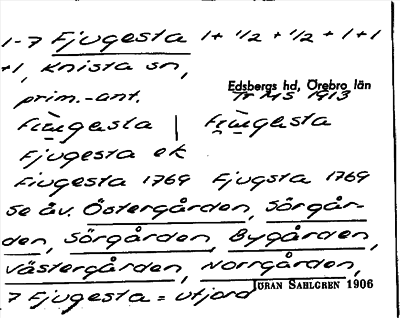 1-7 Fjugesta 1 + 1/2 + 1/2 + 1 + 1
+1, Knista sn,
Edsbergs hd, Örebro län
prim.-ant. Tr MS 1913
Fjugesta ek
Fiugesta 1769 Fjugsta 1769
Se äv. Östergården, Sörgår-
den, Sörgården, Bygården,
Västergården, Norrgården,
7 Fjugesta = utjord
JÖRAN SAHLGREN 1906